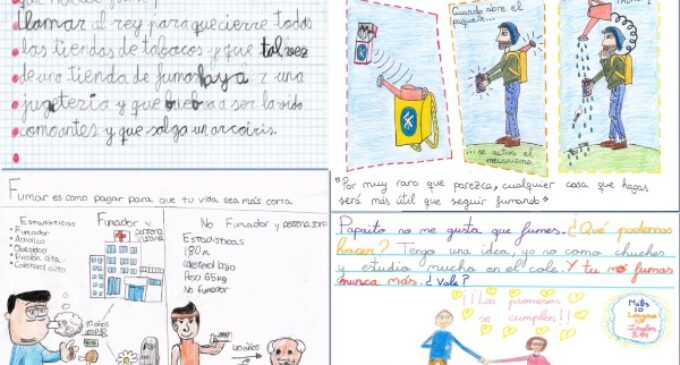 llamar al rey para que cierre todas
las tiendas de tabacos y que tal vez
de uno tienda de fumar haya una
jugetería y que vuelva a ser la vida
como antes y que salga un arcoiris.
Cuando abre el
paquete...
...se activa el
mecanismo
"Por muy raro que parezca, cualquier cosa que hagas
será más útil que seguir fumando"
Fumar es como pagar para que tu vida sea más corta
Estadísticas
Fumador
Achólico
Obesidad
Presión alta
Colesterol alto
Fumador y
persona
insana
No Fumador y persona sana
Estadísticas
180 m
colesterol bajo
Peso 65kg
No fumador
10 años
40 años
Papaito no me gusta que fumes. ¿Qué podemos
hacer? Tengo una idea, yo no como chuches
y estudio mucho en el cole. Y tu no fumas
nunca más. ¿Vale?
¡¡Las promesas
se cumplen!!
Mates
10
Lengua
10
Inglés